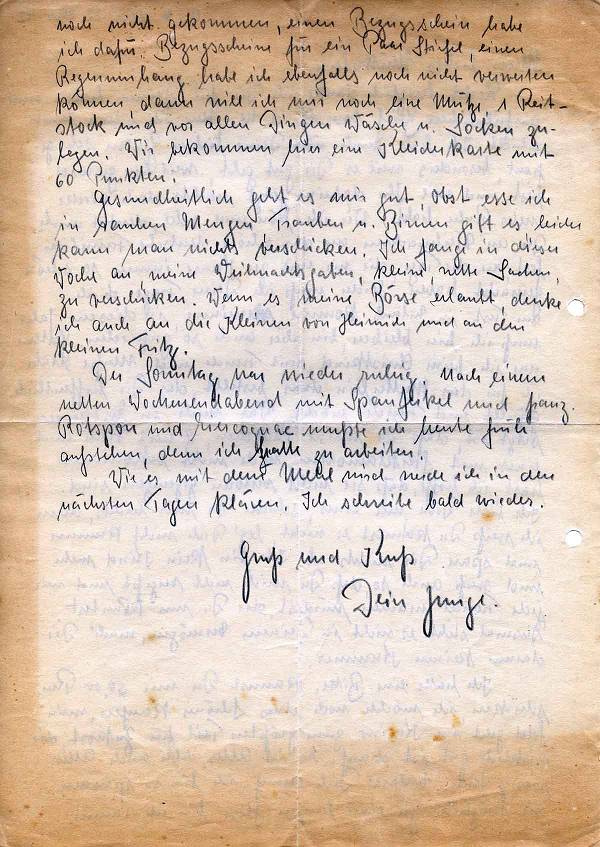 noch nicht gekommen, einen Bezugsschein habe
ich dafür. Bezugsscheine für ein Paar Stiefel, einen
Regenumhang habe ich ebenfalls noch nicht verwerten
können, dann will ich mir noch eine Mütze, 1 Reit-
stock und vor allen Dingen Wäsche u. Socken zu-
legen. Wir bekommen hier eine Kleiderkarte mit
60 Punkten.
Gesundheitlich geht es mir gut, Obst esse ich
in rauhen Mengen, Trauben u. Birnen gift es, leider
kann man nichts verschicken. Ich fange in dieser
Woche an meine Weihnachtsgaben, kleine nette Sachen,
zu verschicken. Wenn es meine Börse erlaubt denke
ich auch an die Kleinen von und an den
kleinen Fritz.
Der Sonntag war wieder ruhig. Nach einem
netten Wochenendabend mit Spanferkel und franz.
Rotspon und mußte ich heute früh
aufstehen, denn ich hatte zu arbeiten.
Wie es mit dem wird werde ich in den
nächsten Tagen klären. Ich schreibe bald wieder.
Gruß und Kuß
Dein Junge.